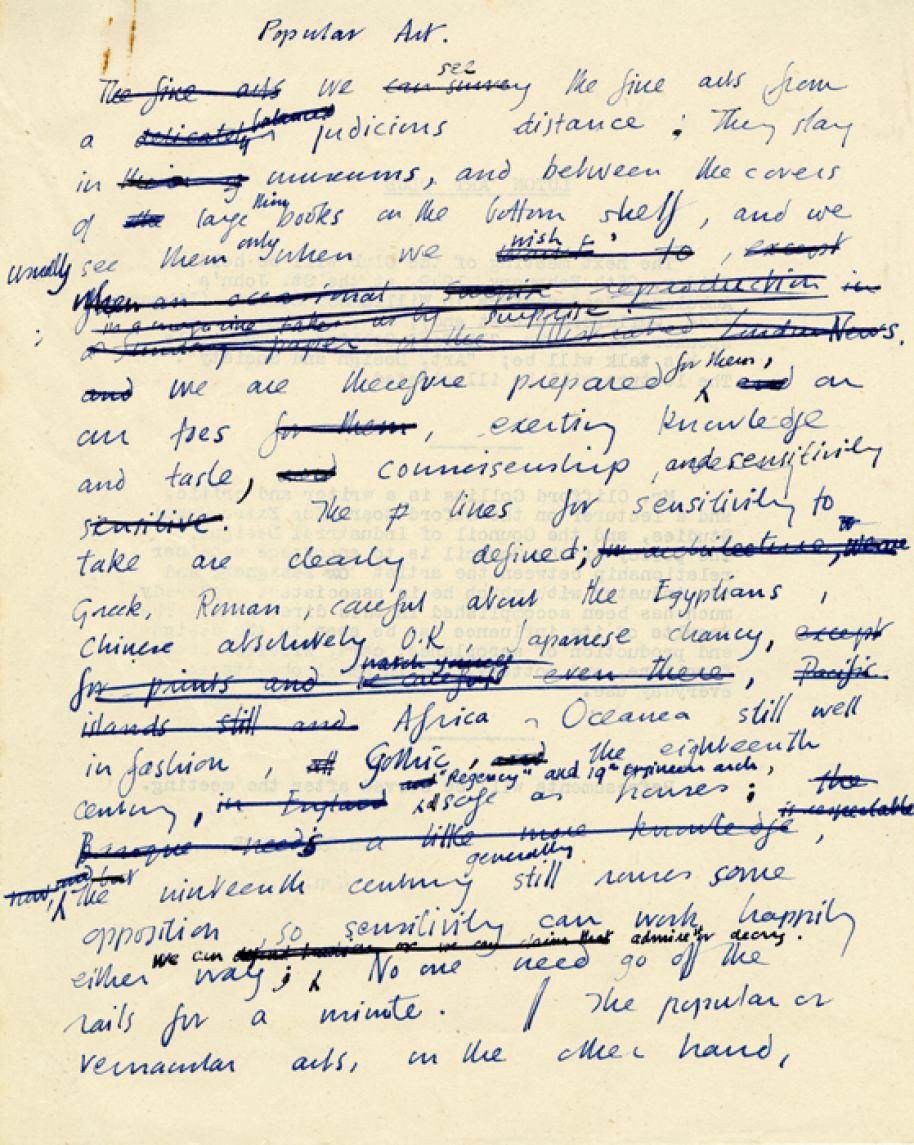 Popular Art.
see
The fine arts we can survey the fine arts from
balanced
a delicately judicious distance : They stay
in museums, and between the covers
of the large thin books on the bottom shelf, and we
usually see them only when we wish to, except
when an occasional reproduction in
in a magazine takes us by surprise.
a Sunday paper or the Illustrated London News.
and we are therefore prepared for them, and on
our toes for them, exerting knowledge
and taste, and connoisseurship, and sensitivity
sensitive. The lines for sensitivity to
take are clearly defined; for architecture, we are
Greek, Roman, careful about the Egyptians,
Chinese absolutely O.K Japanese chancy, except
watch yourself
for prints and be careful even there, Pacific
islands still and Africa & Oceanea still well
in fashion, Gothic, and the eighteenth
and "Regency" and 19th engineers arch,
century, in England safe as houses; the
is respectable
Baroque needs a little more knowledge,
generally
now, and but the nineteenth century still rouses some
opposition so sensitivity can work happily
we can defend we can claim that admire or decry.
either way; No one need go off the
rails for a minute. / The popular or
vernacular arts, on the other hand,